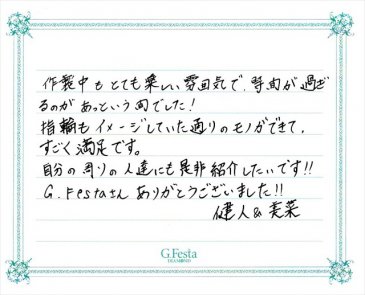 作製中もとても楽しい雰囲気で、時間が過ぎ
るのがあっという間でした!
指輪もイメージしていた通りのモノができて、
すごく満足です。
自分の周りの人達にも是非紹介したいです!!
G.Festaさんありがとうございました!!
健人&美菜
G.Festa
DIAMOND